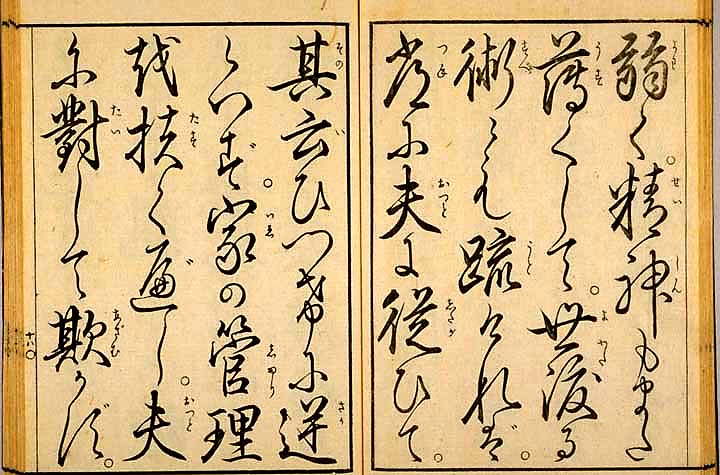 弱く。精神もまた
薄くして。世渡る
術にも疏ければ。
常に夫に従ひて。
其云ひつけに逆
らはず。家の管理
を扶くべし。夫
に對して欺かず。
十八